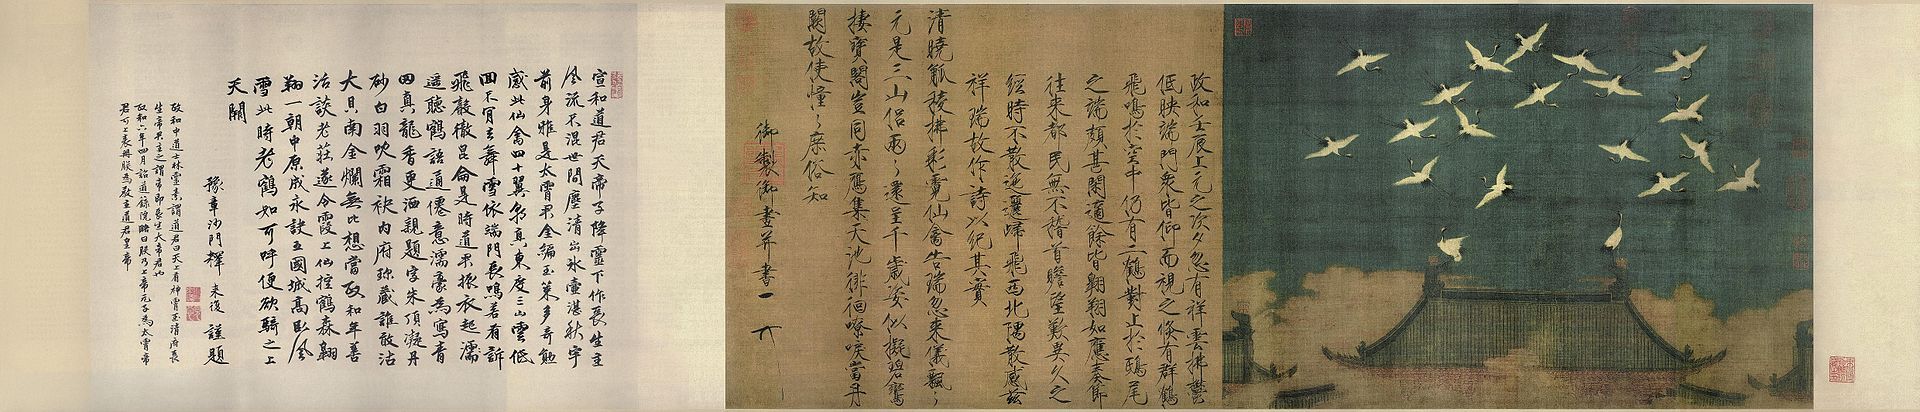 政和壬辰上元之次夕忽有祥雲拂鬱
低映端門衆皆仰而視之倏有群鶴
飛鳴於空中仍有二鶴對止於鴟尾
之端頗甚閑適餘皆翱翔如應奏節
往來都民無不稽首瞻望歎異久之
經時不散迤邐歸飛西北隅散感茲
祥瑞故作詩以紀其實
清曉觚稜拂彩霓仙禽告瑞忽來儀飄〻
元是三山侶兩〻還呈千歲姿似擬碧鸞
棲寶閣豈同赤鴈集天池徘徊嘹唳當丹
闕故使憧〻庶俗知
御製御畫并書
宣和道君天帝子降靈下作長生主
風流不混世間塵清出冰壺湛秋宇
前身雅是太霄君金編玉策多奇勛
感此仙禽四十翼朝真東度三山雲低
回不肯去舞雪依端門長鳴若有訴
飛聲徹昆侖是時道君振衣起
遥聽鶴語通僊意濡豪為寫青
田真龍香更洒親題字朱頂凝丹
砂白羽吹霜袂內府珍藏誰敢沽
大貝南金爛無比想當政和年善
治談老莊遂令霞上仙控鶴森翱
翔一朝中原成永訣五國城高臥風
雪此時老鶴如可呼便欲騎之上
天闕
豫章沙門釋 來復 謹題
政和中道士林靈素謂道君曰天上有神霄玉清府長
生帝君主之謂帝即長生大帝君也
政和六年四月詔道錄院略曰朕乃上帝元子為太霄帝
君可上表冊朕為教主道君皇帝